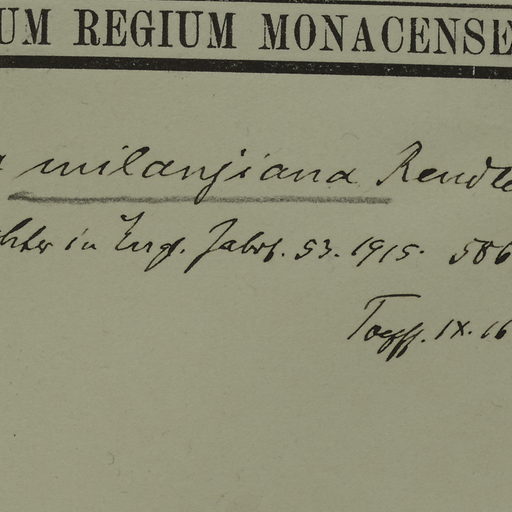 UM REGIUM MONACENSE
milanjiana Rendle
in Engl. Jahrb. 53. 1915. 586
IX. 16